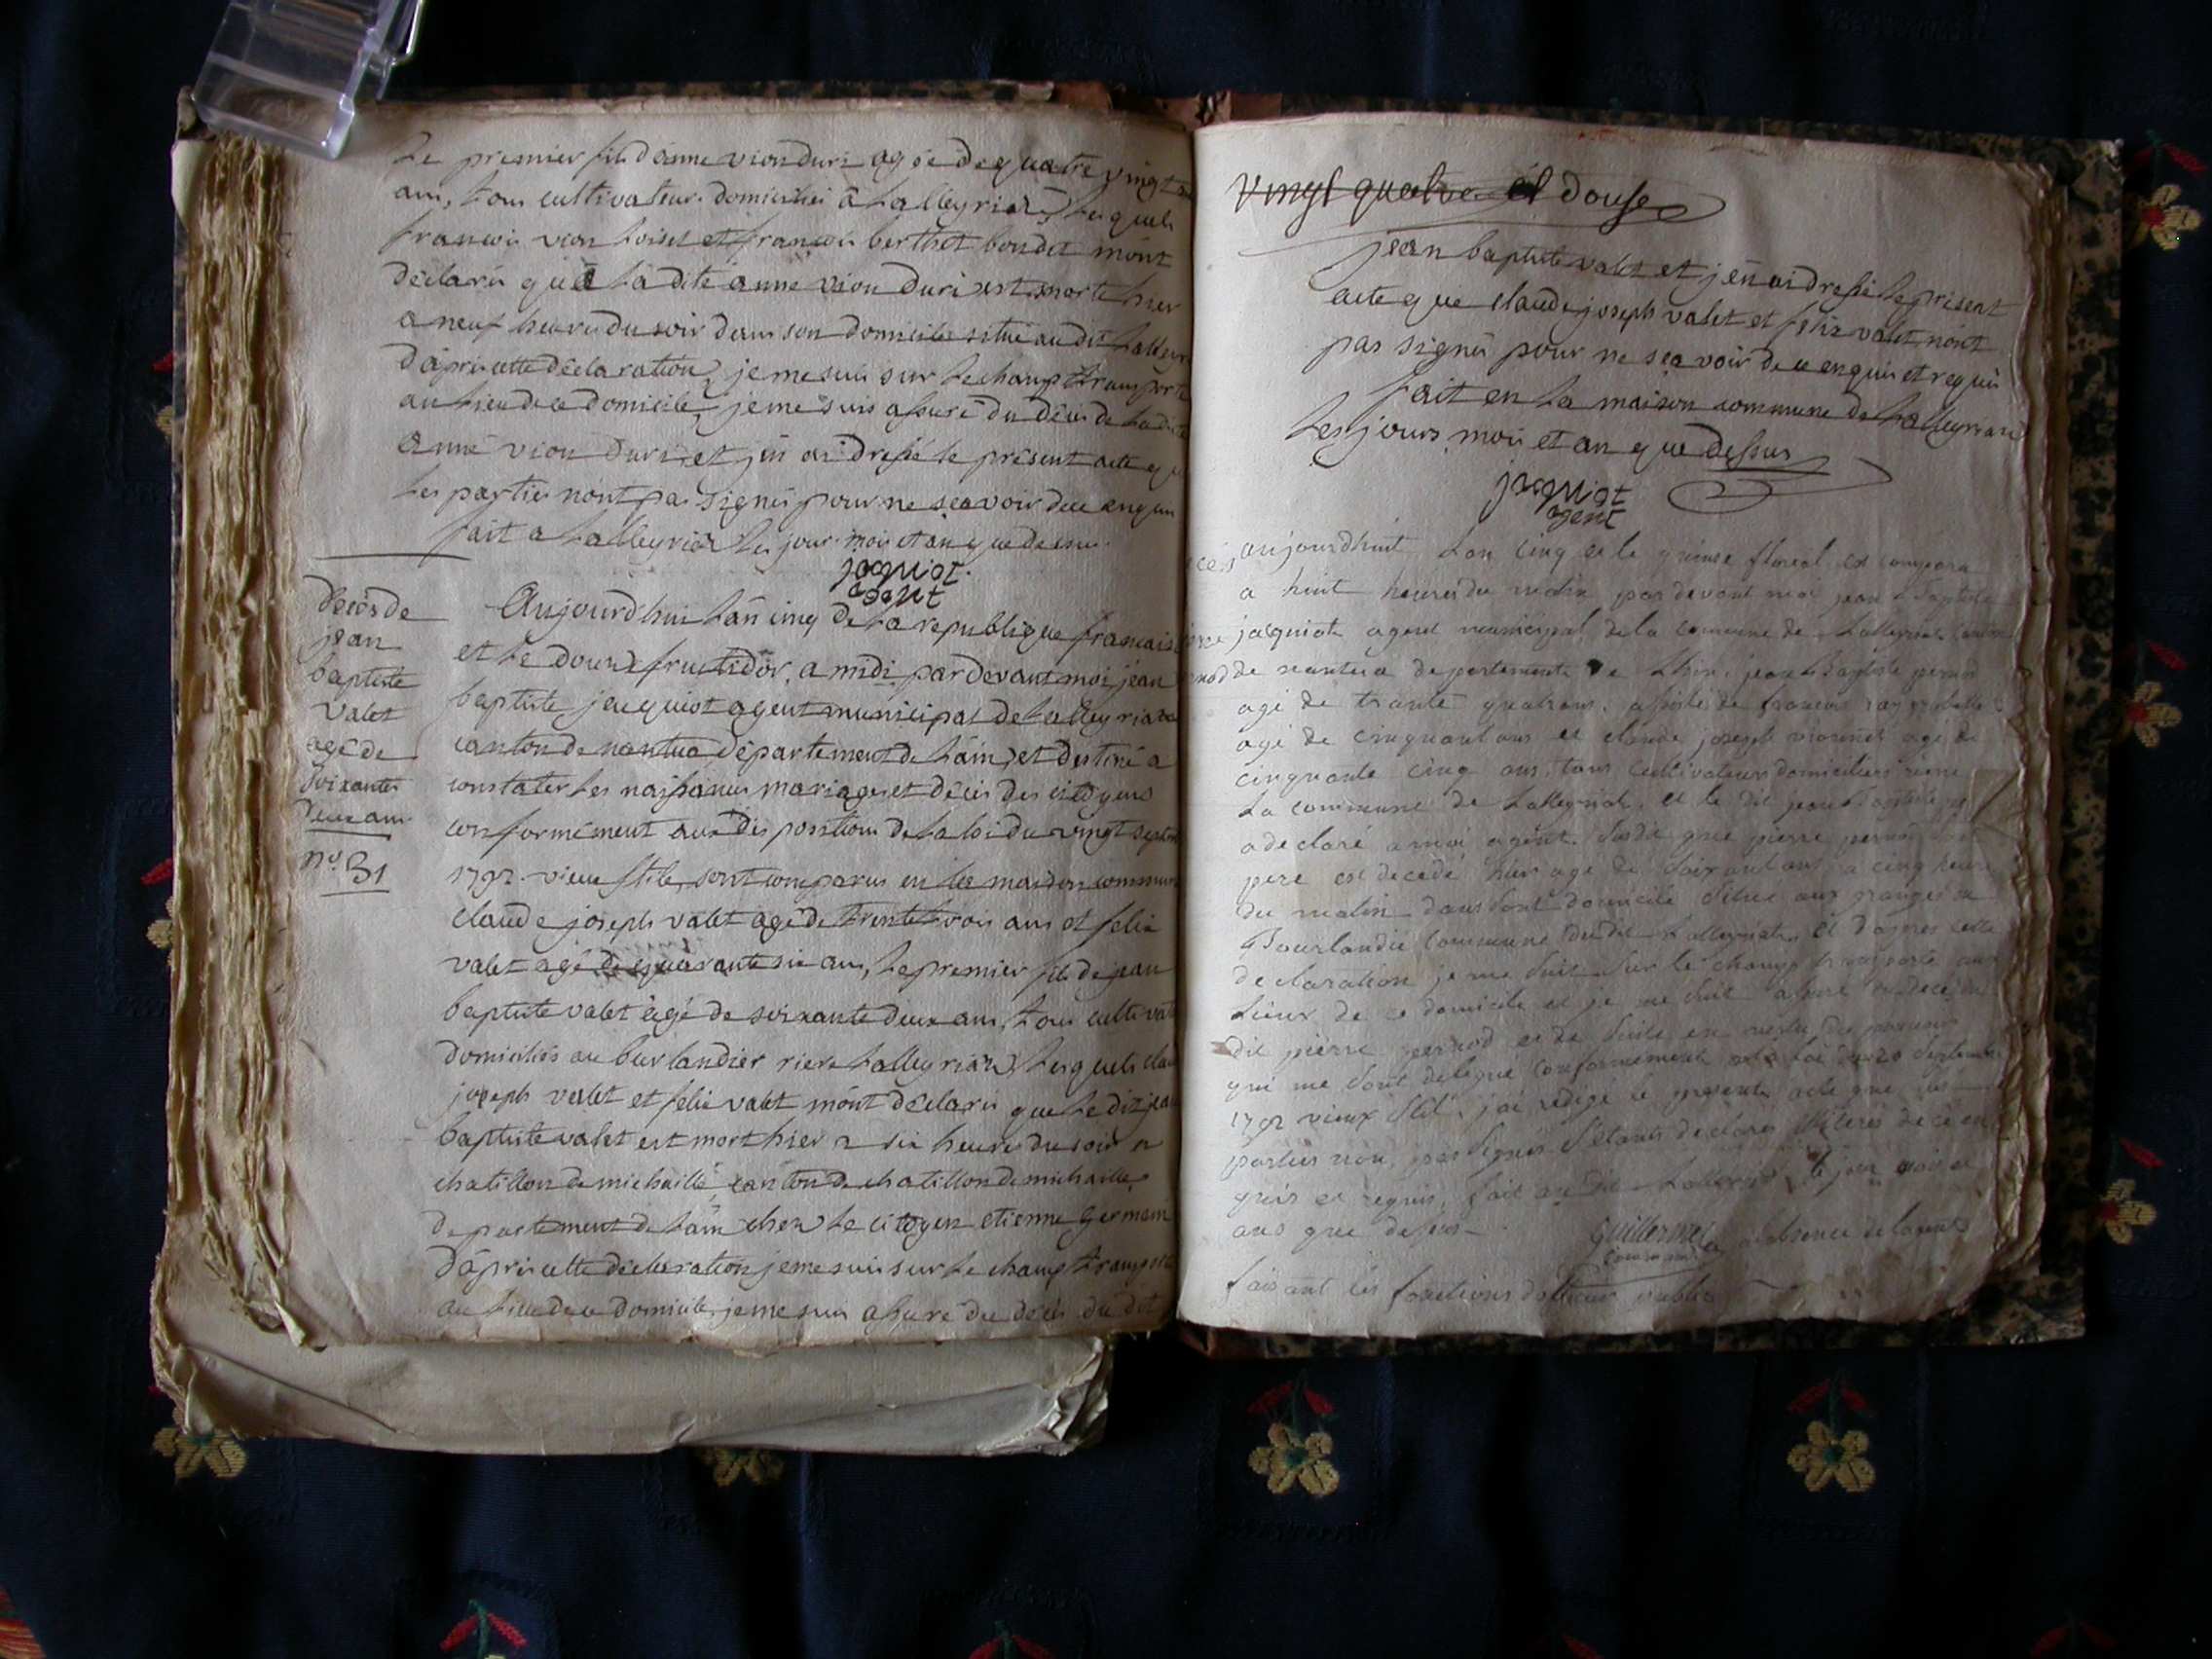 Le premier fils d'anne vion duri agée de quatre vingt
ans, tous cultivateurs domiciliés a Lalleyriat, lesquels
francois vion loiset et francois berthet bondet m'ont
déclaré que la dite anne vion duri est morte hier
a neuf heures du soir dans son domicile situé au dit Lalleyr
d'après cette déclaration, je me suis sur le champ transporté
au lieu de ce domicile, je me suis assuré du décès de la dite
anne vion duri et j'en ai dressé le présent acte que
les parties n'ont pas signés pour ne scavoir de ce enquis
fait a Lalleyriat les jour mois et an que dessus.
jacquiot
agent
Décès de
jean
baptiste
valet
agé de
soixante
deux ans
no. 31
Aujourd'hui l'an cinq de la republique francaise
et le douze fructidor, a midi par devant moi jean
baptiste jacquiot agent municipal de Lalleyriat
canton de nantua département de l'ain, et destiné a
constater les naissances mariages et décès des citoyens
conformément aux dispositions de la loi du vingt sept
1792 vieux stile, sont comparus en la maison commune
claude joseph valet agé de trente trois ans et felix
valet agé de quarante six ans, le premier fils de jean
baptiste valet agé de soixante deux ans, tous cultivat
domiciliés au burlandier riere Lalleyriat, lesquels clau
joseph valet et felix valet m'ont déclaré que le dit jean
baptiste valet est mort hier a six heures du soir a
chatillon de michaille, canton de chatillon de michaille,
département de l'ain chez le citoyen etienne germain
d'après cette déclaration je me suis sur le champ transporté
au lieu de ce domicile, je me suis assuré du décès du dit
vingt quatre et douse
jean baptiste valet et j'en ai dressé le présent
acte que claude joseph valet et felix valet n'ont
pas signés pour ne scavoir de ce enquis et requis
fait en la maison commune de Lalleyriat
les jours mois et an que dessus
jacquiot
agent
aujourdhuit Lan cinq et le quinse floreal est comparu
a huit heures du matin par devant moi jean Baptiste
jacquiot agent municipal de la comune de Lalleyriat canton
de nantua departement de Lhin, jean Baptiste pernod
agé de trante quatrans, assisté de francois
agé de cinquantans et claude joseph agé de
cinquante cinq ans, tous cultivateurs domiciliers riere
La commune de Lalleyriat, et le dit jean Baptiste
a declaré a moi agent susdit que pierre pernod son
pere est decedé hier agé de soixantans a cinq heure
du matin dans sont domicile situé aux granges de
Bourlandié commune dudit Lalleyriat, et d'apres cette
declaration je me suit sur le champ transporté aux
Lieux de ce domicile et je me suit assuré du decé du
dit pierre pernod et de suite en vertu des pouvoirs
qui me sont délégué conformement a la loi du 20 septembre
1792 vieux stil, j'ai redigé le present acte que les
parties non pas signés s'étants declarés illiteres de ce en
quis et requis, fait au dit Lalleyriat le jour mois et
ans que dessus
Guillermet
en l'absence de lagent
faisant les fonctions d'officier public